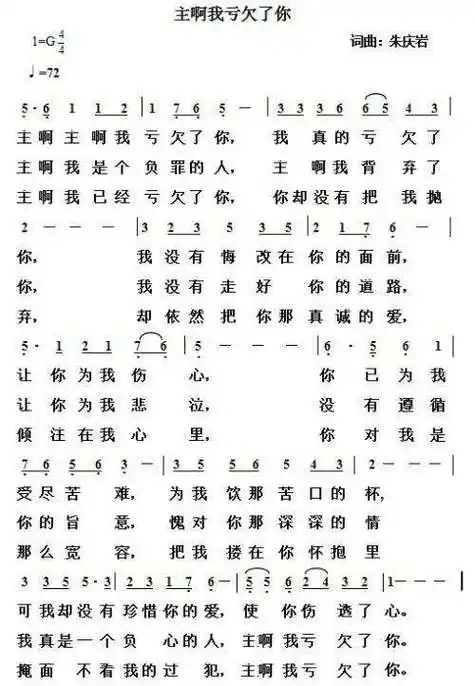 主啊我亏欠了你
1=G 4/4 词曲：朱庆岩
♩=72
5·6 1 1 2 | 1 7 6 5 — | 3 3 3 3 6 5 4 3 |
主啊主啊我亏欠了你， 我真的亏欠了
主啊我是个负罪的人， 主啊我背弃了
主啊我已经亏欠了你， 你却没有把我抛
2 — — — | 3 2 3 5 3 5 | 2 1 7 6 — |
你， 我没有悔改在你的面前，
你， 我没有走好你的道路，
弃， 却依然把你那真诚的爱，
5· 1 2 2 1 7 6 | 5 — — — | 6· 5 6 1 |
让你为我伤心， 你已为我
让你为我悲泣， 没有遵循
倾注在我心里， 你对我是
7 6 5 6 3 — | 3 5 5 6 5 4 3 | 2 — — — |
受尽苦难， 为我饮那苦口的杯，
你的旨意， 愧对你那深深的情
那么宽容， 把我搂在你怀抱里
3 3 5 5·3 | 2 3 1 7 6 5· — | 5 5 6 2 4 3 2 | 1 — — |
可我却没有珍惜你的爱，使你伤透了心。
我真是一个负心的人，主啊我亏欠了你。
掩面不看我的过犯，主啊我亏欠了你。